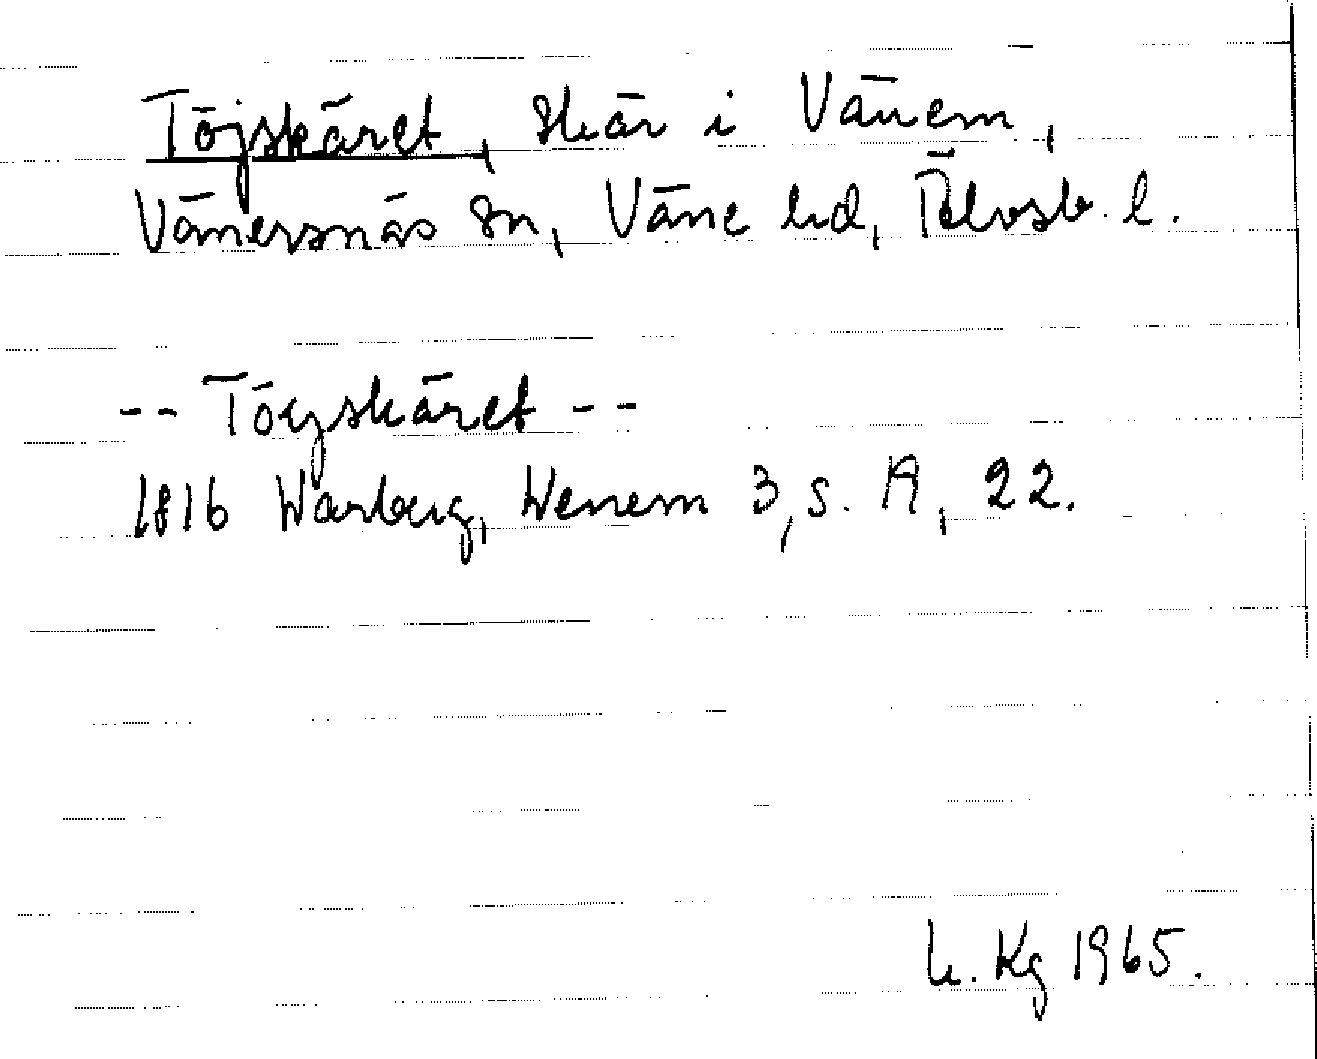 Töjskäret, skär i Vänern,
Vänersnäs sn, Väne hd, Älvsb. l.
-- Töyskäret --
1816 Warberg, Wenern 3, s. A, 22.
L. Kg 1965.